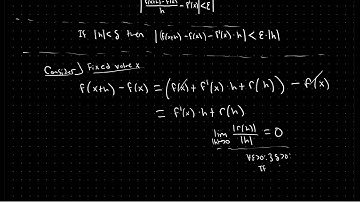 | (f(x+h)-f(x))/h - f'(x) | < ε |
If |h| < δ then |f(x+h) - f(x) - f'(x)·h| < ε·|h|
Consider) Fixed value x
f(x+h) - f(x) = (f(x) + f'(x)·h + r(h)) - f(x)
= f'(x)·h + r(h)
lim |h|→0 |r(h)|/|h| = 0
∀ε>0 ∃ δ>0:
If